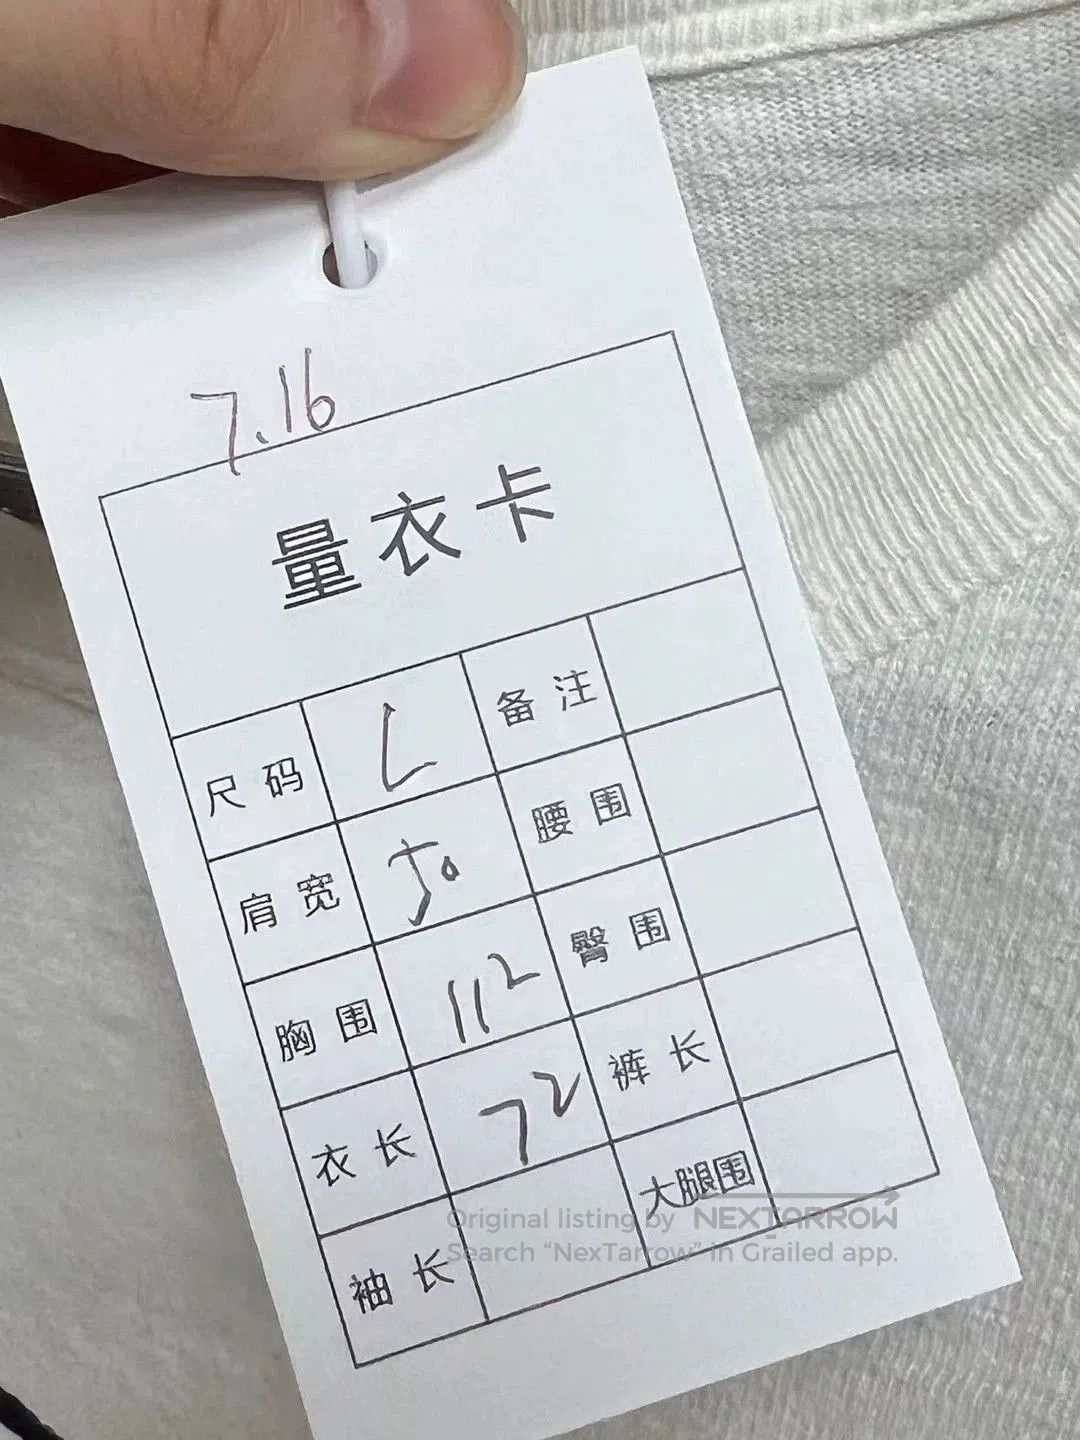 7.16
量衣卡
尺码 L 备注
肩宽 50 腰围
胸围 112 臀围
衣长 72 裤长
袖长 大腿围
Original listing by NEXTARROW
Search “NexTarrow” in Grailed app.